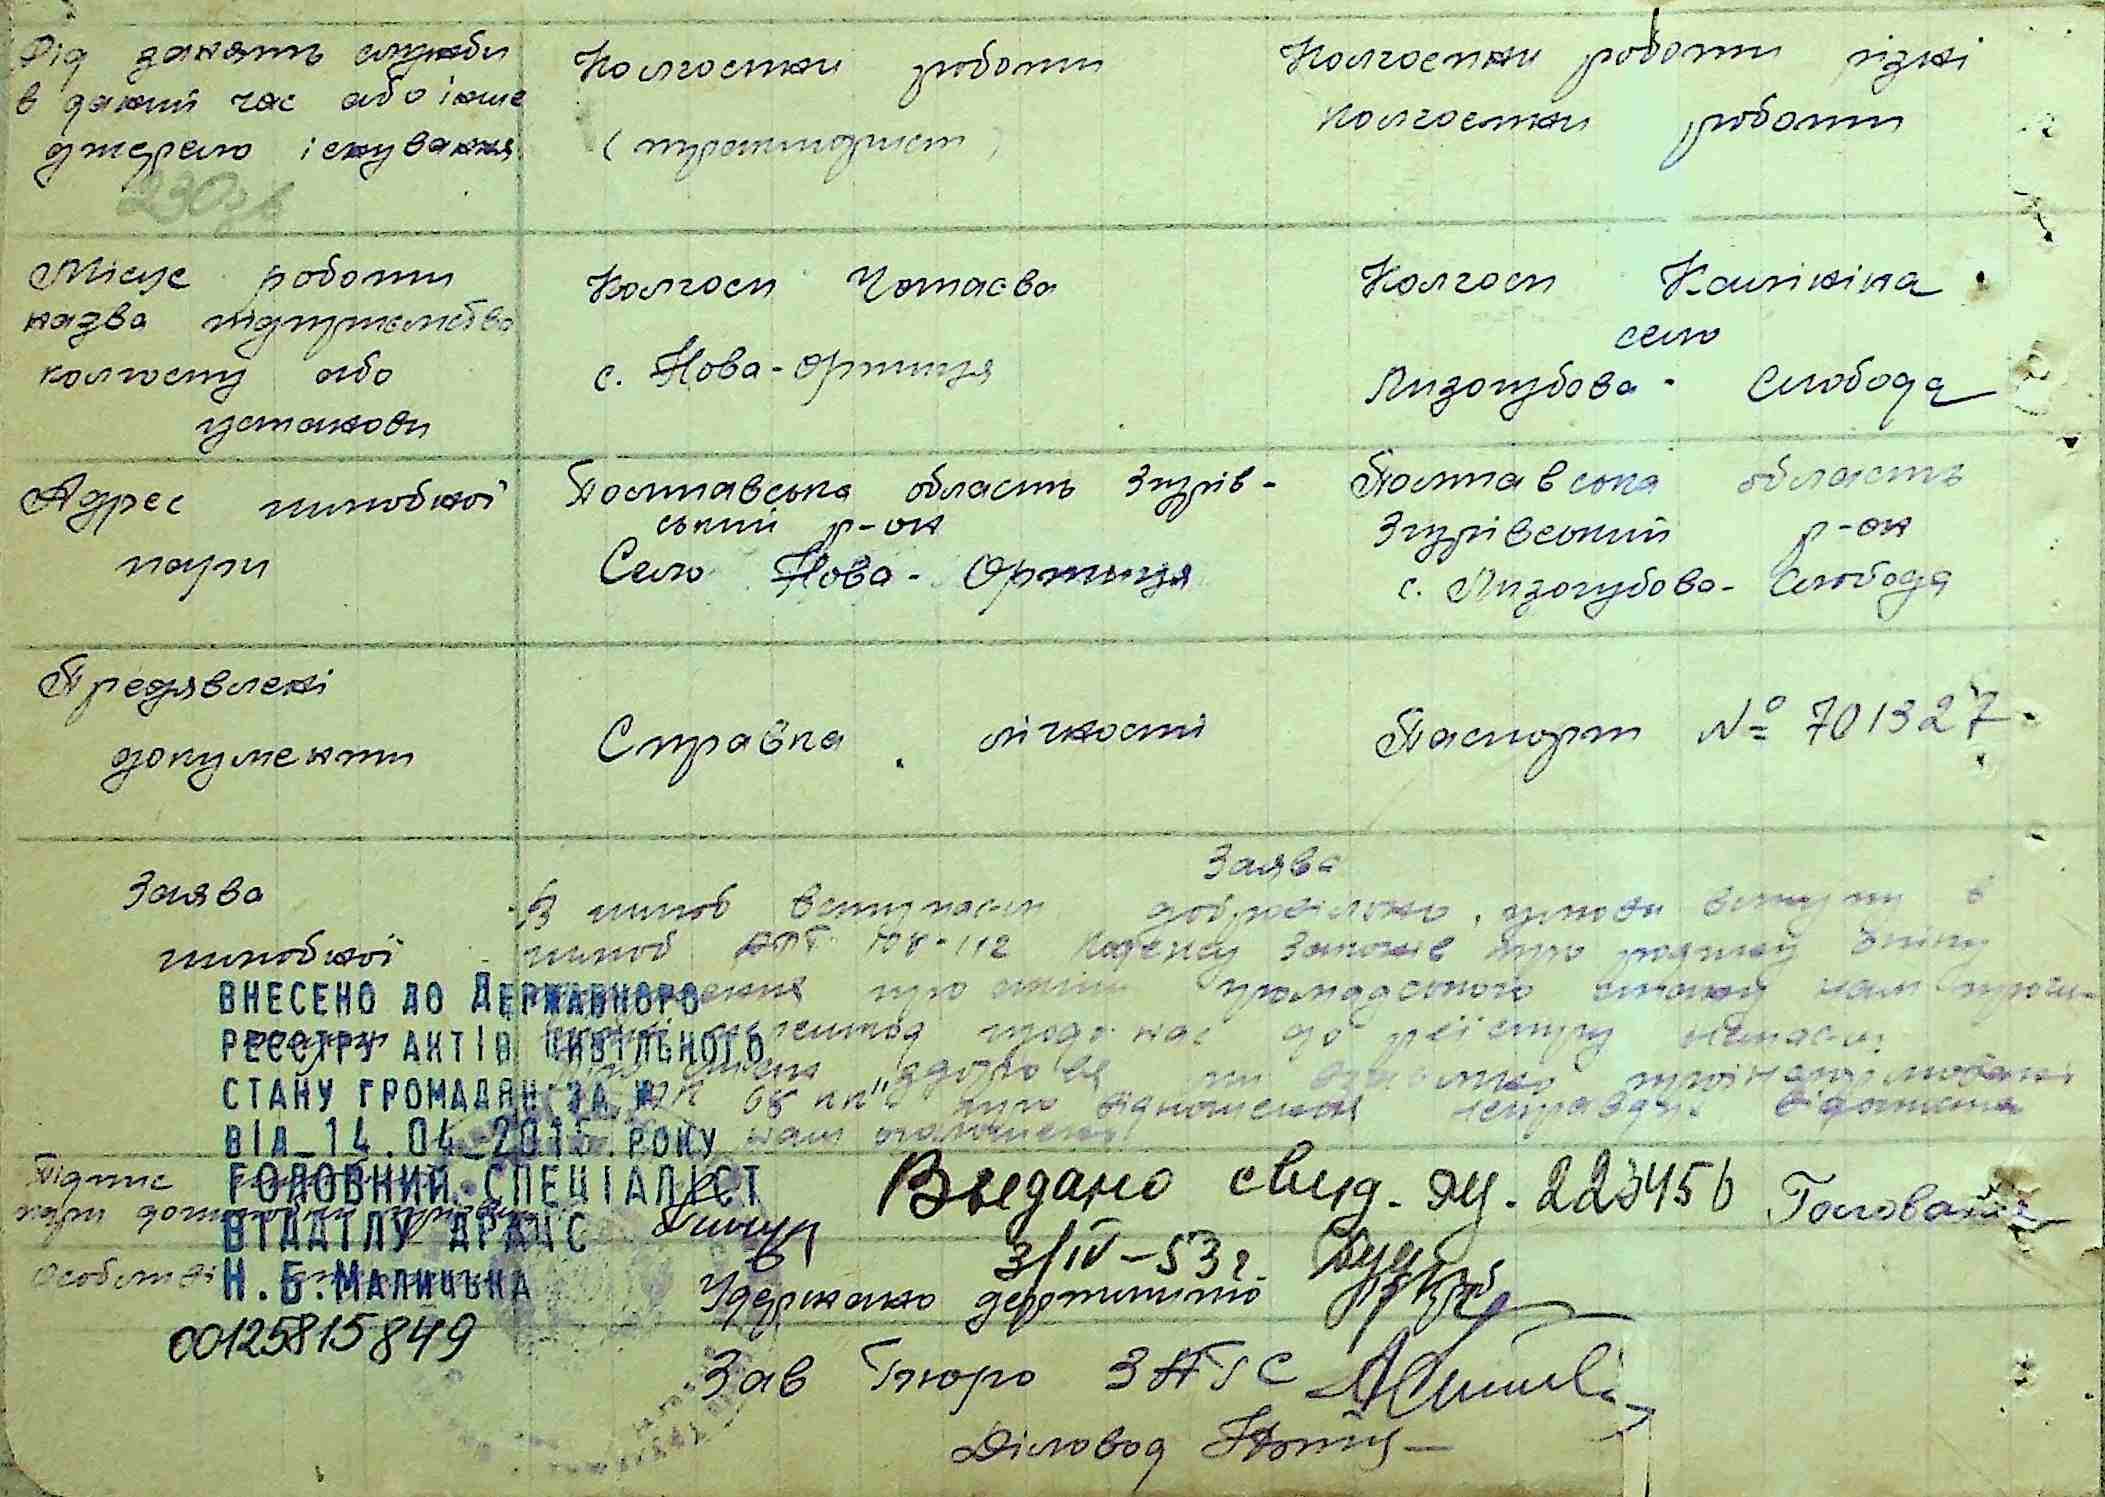 Рід занять служби
в даний час або інше
джерело існування
Колгоспни роботи
(тракторист)
Колгоспни роботи різні
колгоспни роботи
Місце роботи
назва підприємства
колгоспу або
установи
Колгосп Чапаєва
с. Нова-Оржиця
Колгосп Калініна
село
Лизогубова-Слобода
Адрес шлюбної
пари
Полтавська область Згурів-
ський р-он
Село Нова-Оржиця
Полтавська область
Згурівський р-он
с. Лизогубова-Слобода
Предявлені
документи
Справка личності
Паспорт № 701327
Заява
шлюбної
Заява
В шлюб вступаєм добровільно, умови вступу в
шлюб арт 108-112 Кодексу Законів про родину зміну
про зміни громадського стану нам
щодо нас до реєстру
здоровя ми взаємно
про відношення
нам оголошено
ВНЕСЕНО ДО ДЕРЖАВНОГО
РЕЄСТРУ АКТІВ ЦИВІЛЬНОГО
СТАНУ ГРОМАДЯН ЗА №
ВІД 14.04.2015. РОКУ
ГОЛОВНИЙ СПЕЦІАЛІСТ
ВІДДІЛУ ДРАЦС
Н.Б.МАЛИЦЬКА
00125815849
Підпис
Особливі
Выдано свид. ЯЦ. 223456
3/IV-53 г.
Удержано держмито
Зав Бюро ЗАГС
Діловод